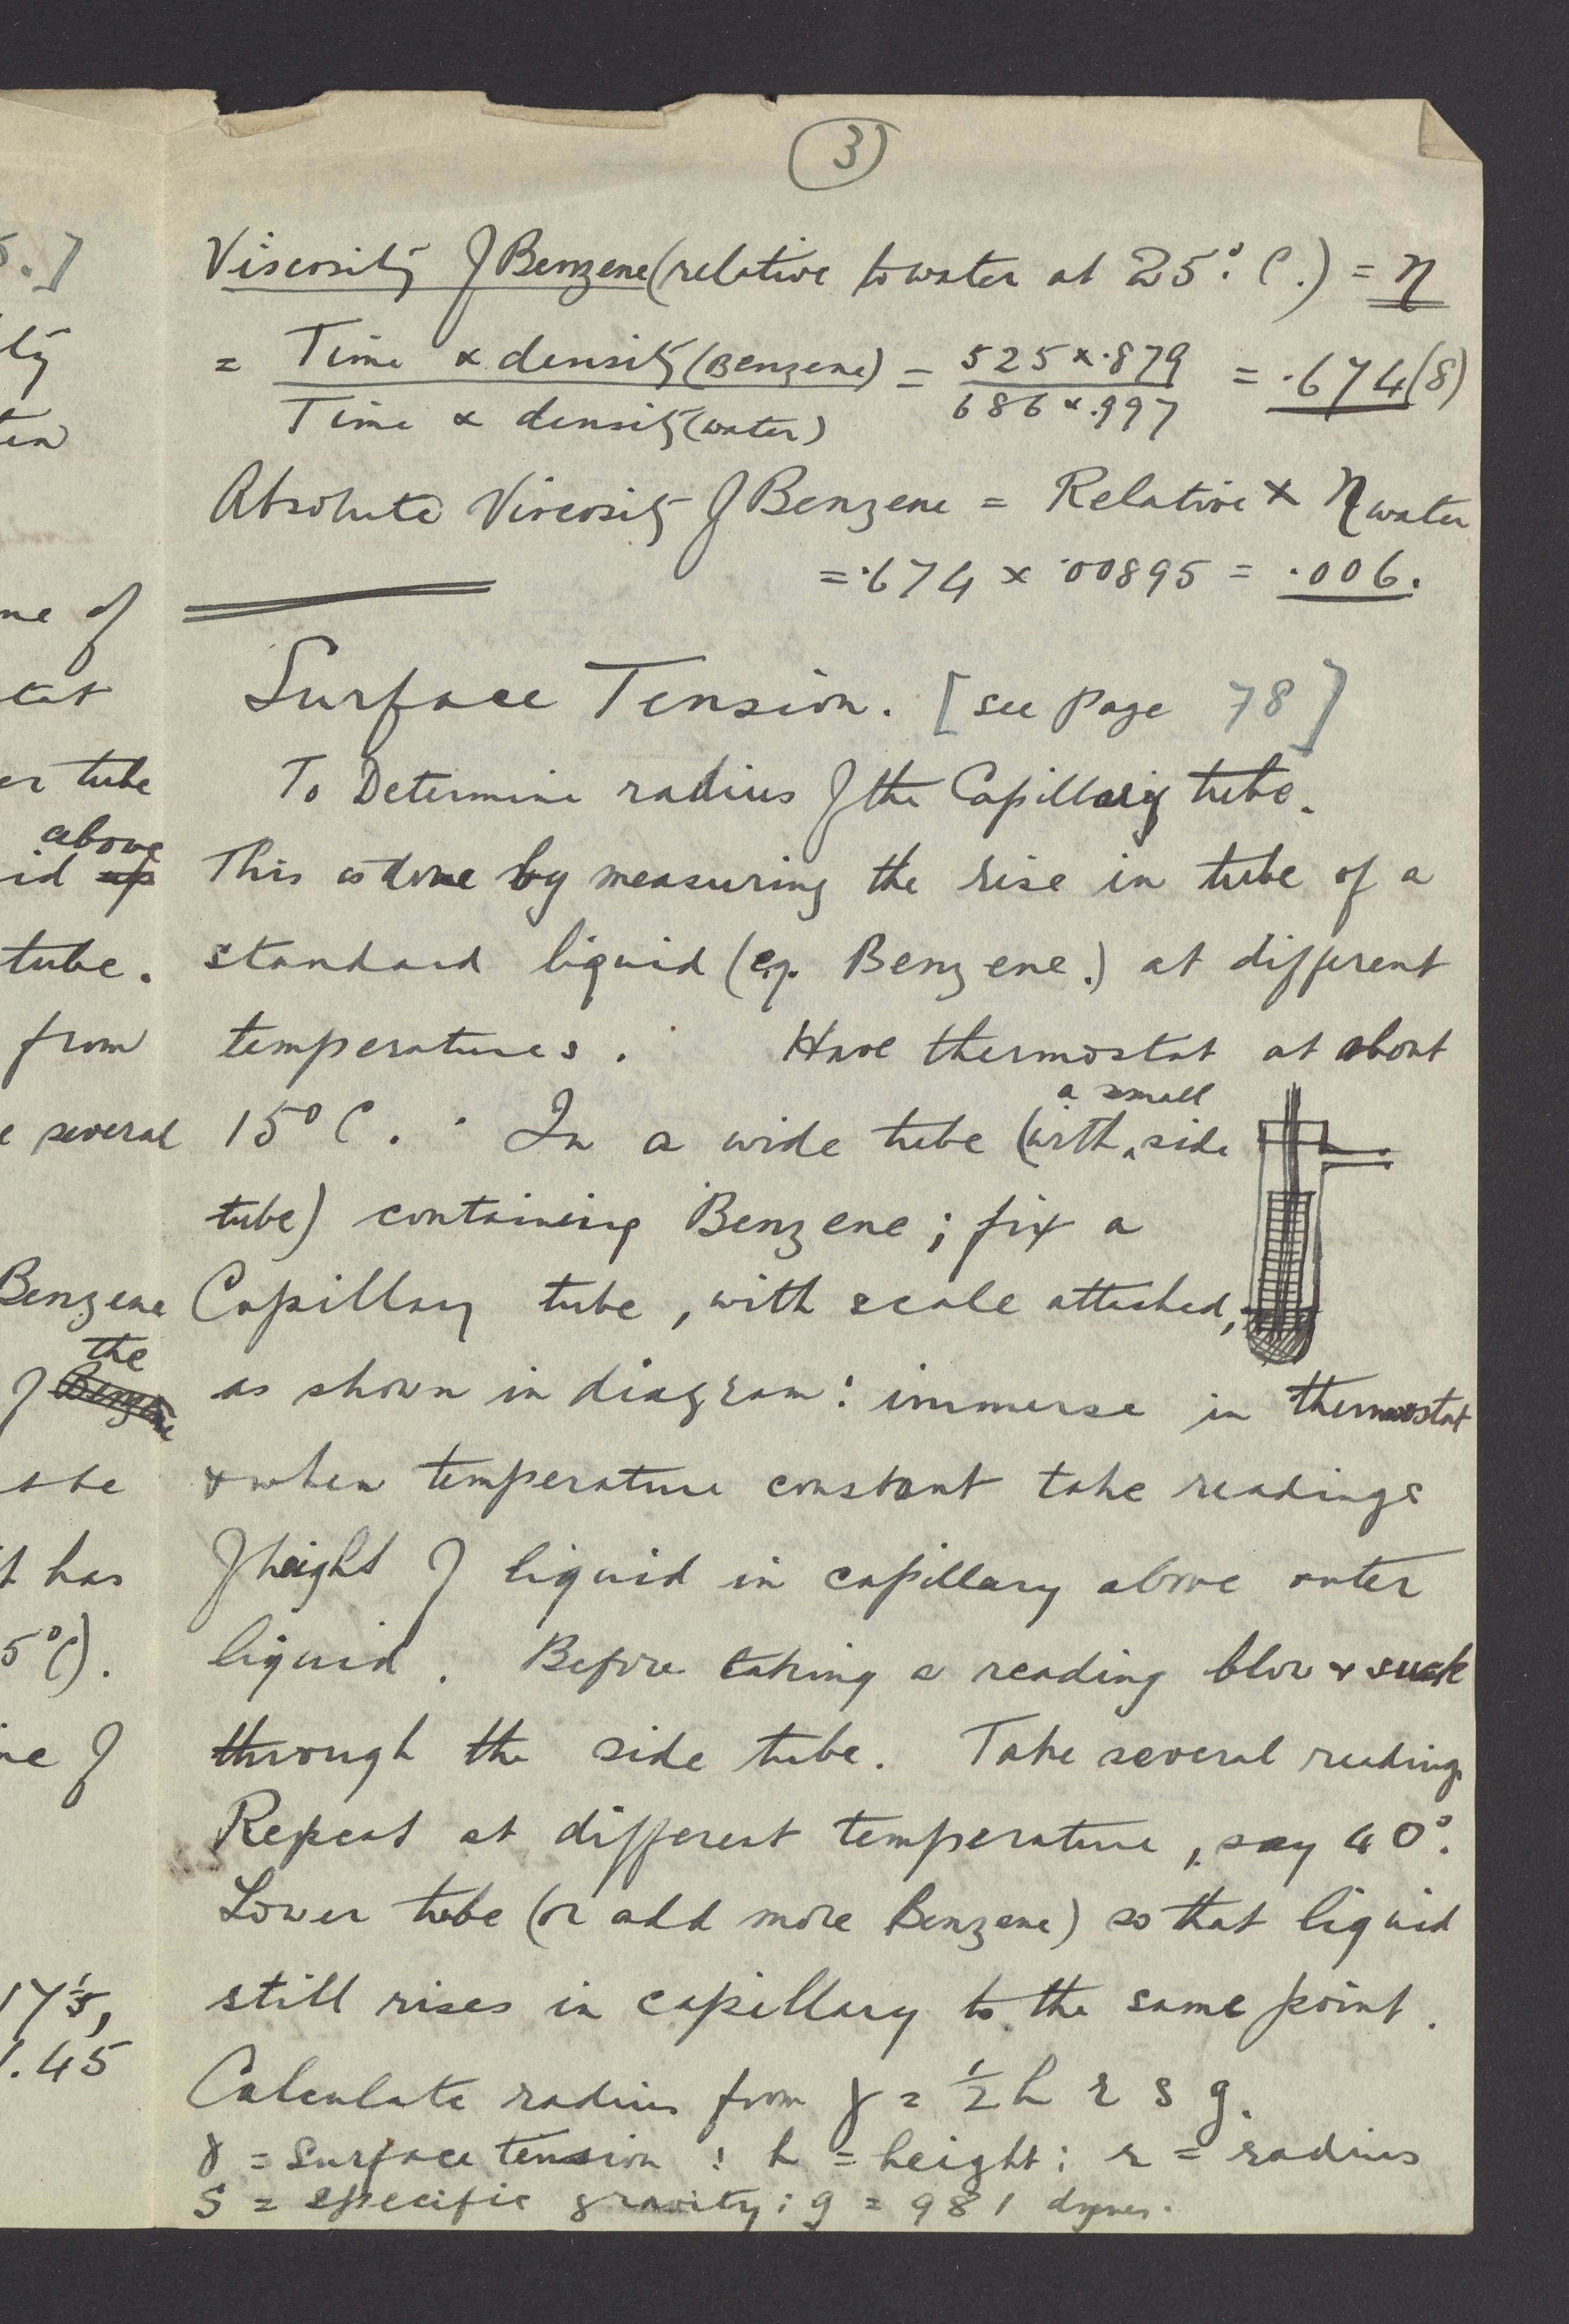 3
Viscosity of Benzene (relative to water at 25°. C.) = η
= Time × density (Benzene) / Time × density (water) = 525 × .879 / 686 × .997 = .674(8)
Absolute Viscosity of Benzene = Relative × η water
= .674 × .00895 = .006.
Surface Tension. [see page 78]
To Determine radius of the Capillary tube.
This is done by measuring the rise in tube of a
standard liquid (e.g. Benzene.) at different
temperatures. Have thermostat at about
15°C. In a wide tube (with a small side
tube) containing Benzene; fix a
Capillary tube, with scale attached,
as shown in diagram: immerse in thermostat
& when temperature constant take readings
of height of liquid in capillary above outer
liquid. Before taking a reading blow & suck
through the side tube. Take several readings
Repeat at different temperature, say 40°.
Lower tube (or add more Benzene) so that liquid
still rises in capillary to the same point.
Calculate radius from γ = ½ h r s g.
γ = surface tension : h = height : r = radius
S = specific gravity : g = 981 dynes.
5.]
ty
me of
er tube
above
id up
tube.
from
e several
Benzene
the
of Benzene
t has
5°C).
ne of
17⅕,
1.45